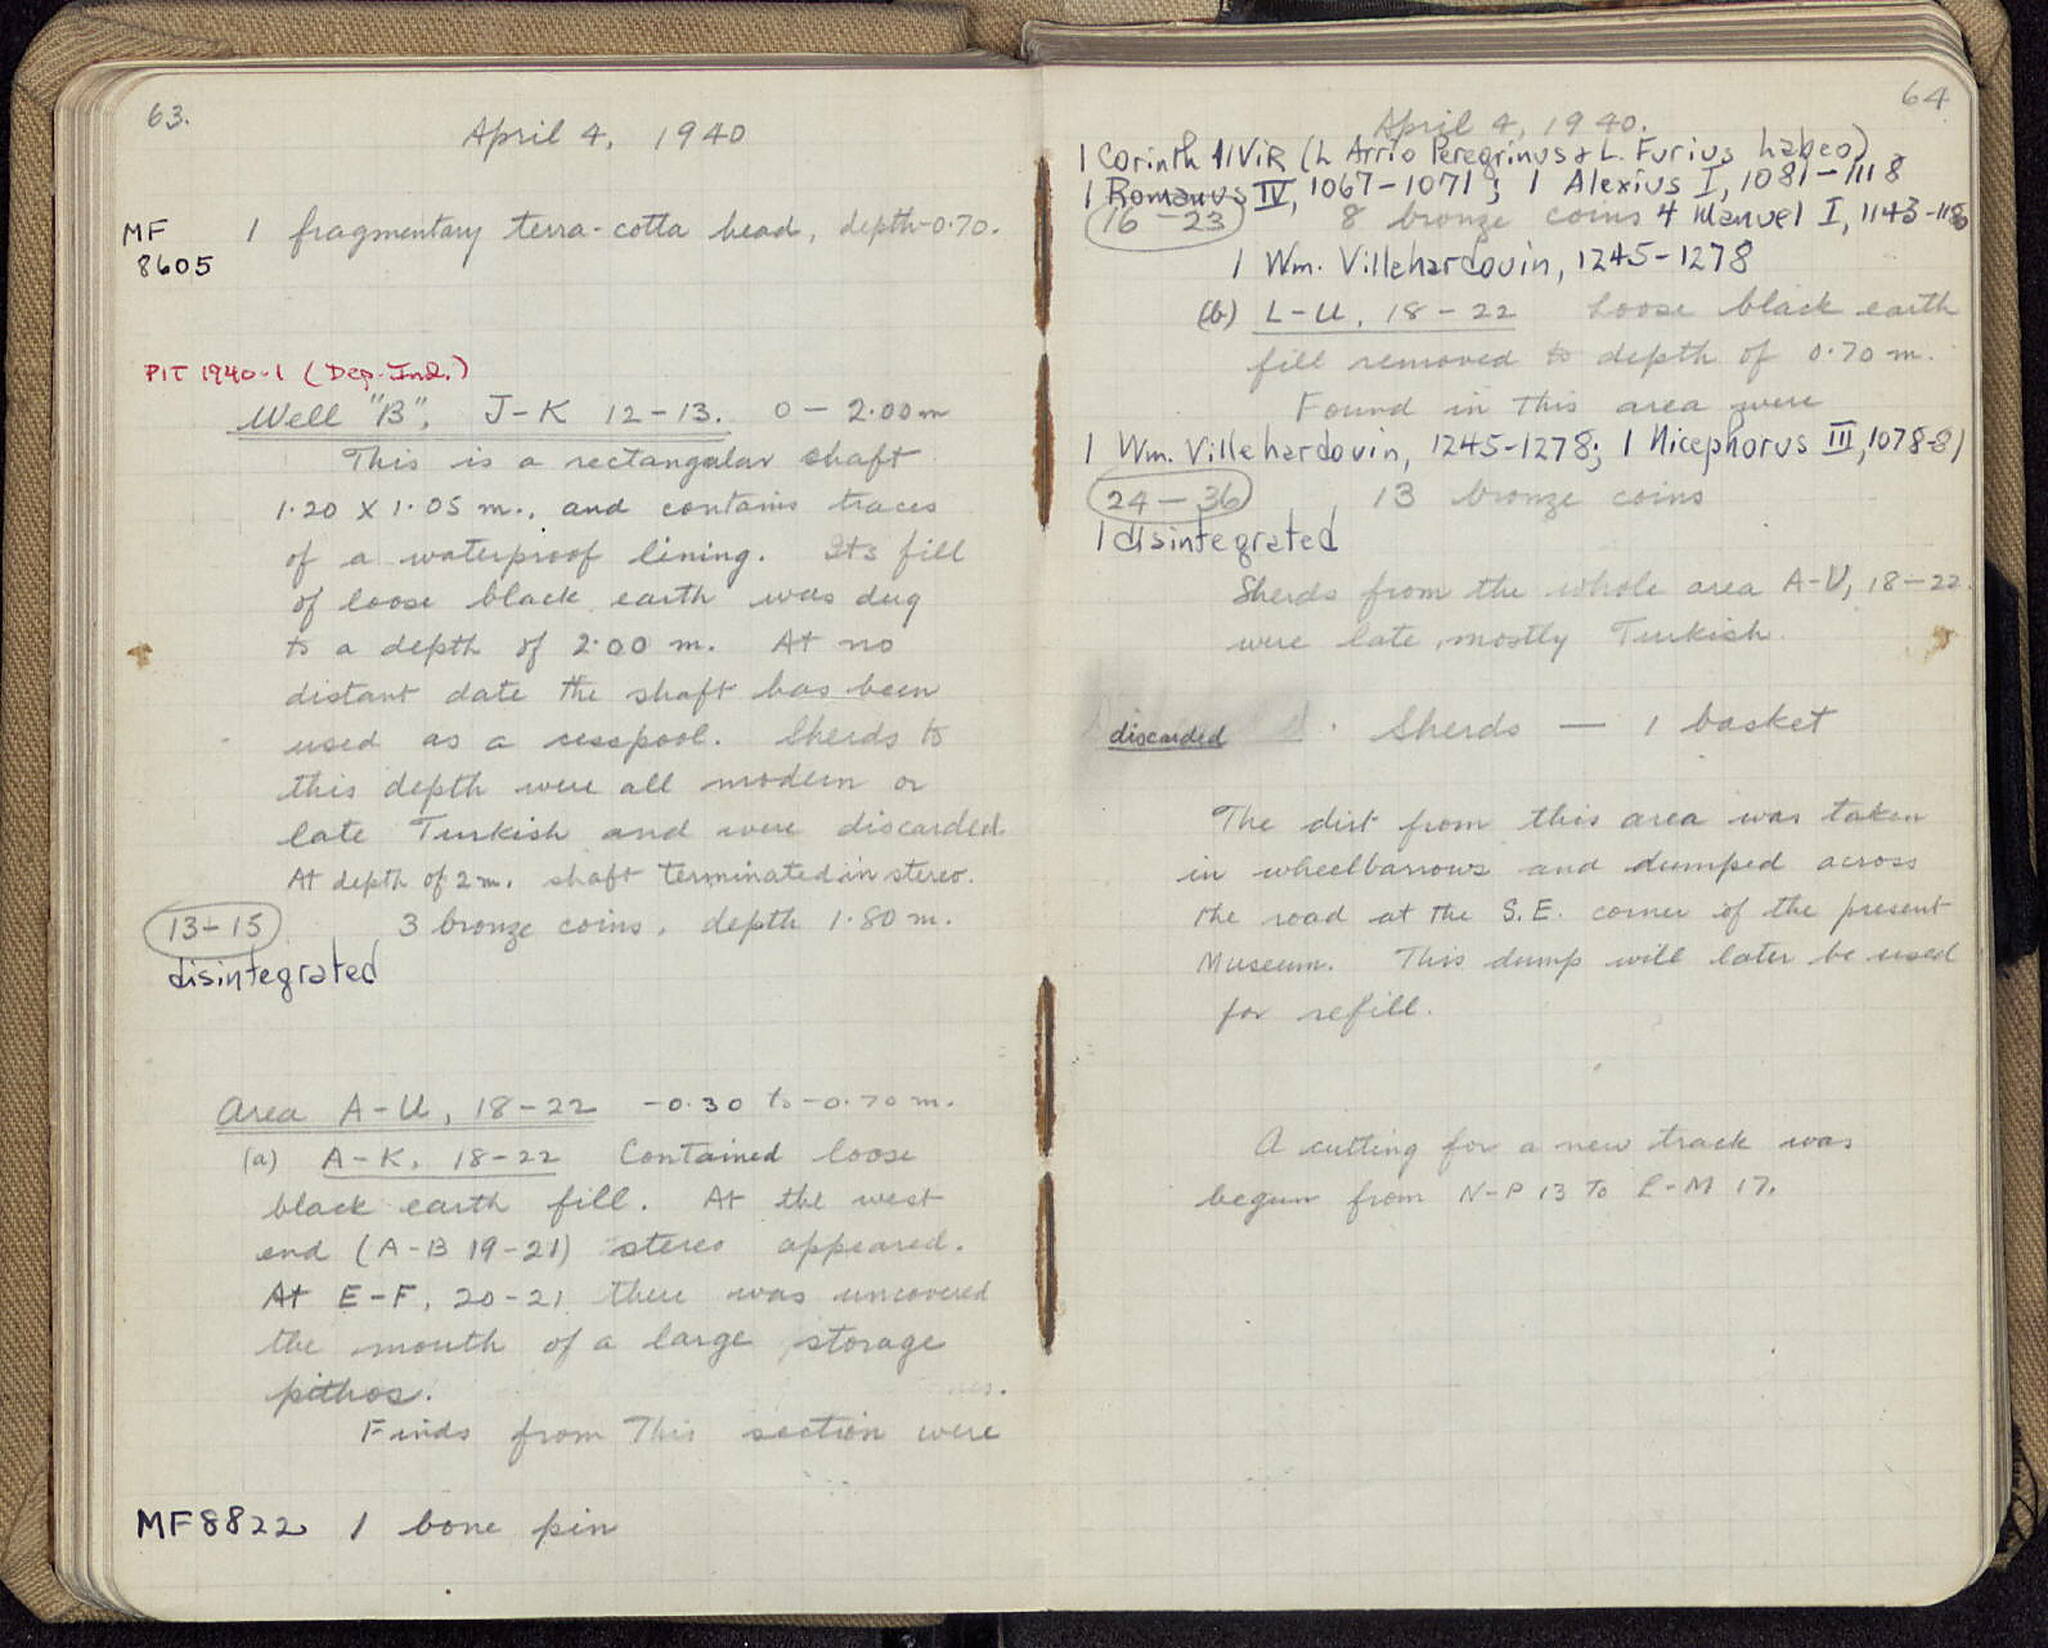 63.
April 4, 1940
MF
8605
1 fragmentary terra-cotta head, depth -0.70.
PIT 1940-1 (Dep. Ind.)
Well "B", J-K 12-13. 0 - 2.00 m
This is a rectangular shaft
1.20 x 1.05 m., and contains traces
of a waterproof lining. Its fill
of loose black earth was dug
to a depth of 2.00 m. At no
distant date the shaft has been
used as a cesspool. Sherds to
this depth were all modern or
late Turkish and were discarded.
At depth of 2 m. shaft terminated in stereo.
13-15 3 bronze coins, depth 1.80 m.
disintegrated
Area A-U, 18-22 -0.30 to -0.70 m.
(a) A-K, 18-22 Contained loose
black earth fill. At the west
end (A-B 19-21) stereo appeared.
At E-F, 20-21 there was uncovered
the mouth of a large storage
pithos.
Finds from this section were
MF8822 1 bone pin
64
April 4, 1940.
1 Corinth IIViR (L Arrio Peregrinus & L. Furius Labeo)
1 Romanus IV, 1067-1071; 1 Alexius I, 1081-1118
16-23 8 bronze coins 4 Manuel I, 1143-1180
1 Wm. Villehardouin, 1245-1278
(b) L-U, 18-22 Loose black earth
fill removed to depth of 0.70 m.
Found in this area were
1 Wm. Villehardouin, 1245-1278; 1 Nicephorus III, 1078-81
24-36 13 bronze coins
1 disintegrated
Sherds from the whole area A-U, 18-22.
were late, mostly Turkish.
discarded Sherds — 1 basket
The dirt from this area was taken
in wheelbarrows and dumped across
the road at the S.E. corner of the present
Museum. This dump will later be used
for refill.
A cutting for a new track was
begun from N-P 13 to L-M 17.